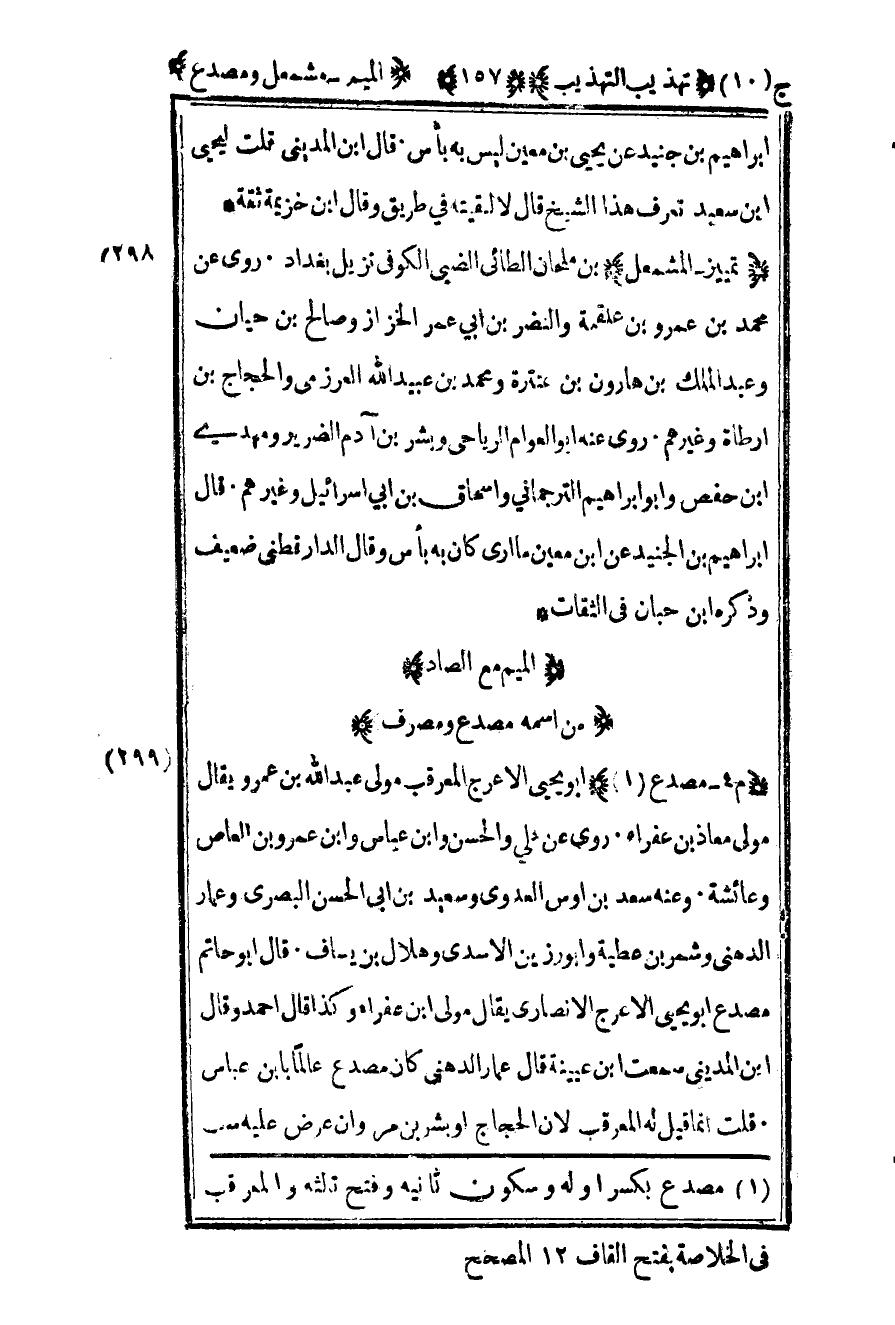 ج (١٠) ﴿ تهذيب التهذيب ﴾ ﴿ ١٥٧ ﴾ ﴿ الميم ـ مشمعل ومصدع ﴾
ابراهيم بن جنيد عن يحيى بن معين ليس به بأس · قال ابن المديني قلت ليحيى
ابن سعيد تعرف هذا الشيخ قال لا لقيته في طريق وقال ابن خزيمة ثقة *
(٢٩٨) ﴿ تمييز ـ المشمعل ﴾ بن ملحان الطائى الضبي الكوفى نزيل بغداد · روى عن
محمد بن عمرو بن علقمة والنضر بن ابي عمر الخزاز وصالح بن حيان
وعبد الملك بن هارون بن عنترة ومحمد بن عبيدالله العرزمى والحجاج بن
ارطاة وغيرهم · روى عنه ابوالعوام الرياحى وبشر بن آدم الضرير ومهدي
ابن حفص وابوابراهيم الترجماني واسحاق بن ابي اسرائيل وغيرهم · قال
ابراهيم بن الجنيد عن ابن معين ما ارى كان به بأس وقال الدارقطنى ضعيف
وذكره ابن حبان فى الثقات *
﴿ الميم مع الصاد ﴾
﴿ من اسمه مصدع ومصرف ﴾
(٢٩٩) ﴿ م٤ ـ مصدع (١) ﴾ ابو يحيى الاعرج المعرقب مولى عبدالله بن عمرو يقال
مولى معاذ بن عفراء · روى عن علي والحسن وابن عباس وابن عمرو بن العاص
وعائشة · وعنه سعد بن اوس العدوى وسعيد بن ابى الحسن البصرى وعمار
الدهنى وشمر بن عطية وابورزين الاسدى وهلال بن يساف · قال ابو حاتم
مصدع ابو يحيى الاعرج الانصارى يقال مولى ابن عفراء وكذا قال احمد وقال
ابن المدينى سمعت ابن عيينة قال عمار الدهنى كان مصدع عالمًا بابن عباس
· قلت انما قيل له المعرقب لان الحجاج او بشر بن مروان عرض عليه سب
(١) مصدع بكسر اوله وسكون ثانيه وفتح ثالثه والمعرقب
فى الخلاصة بفتح القاف ١٢ المصحح